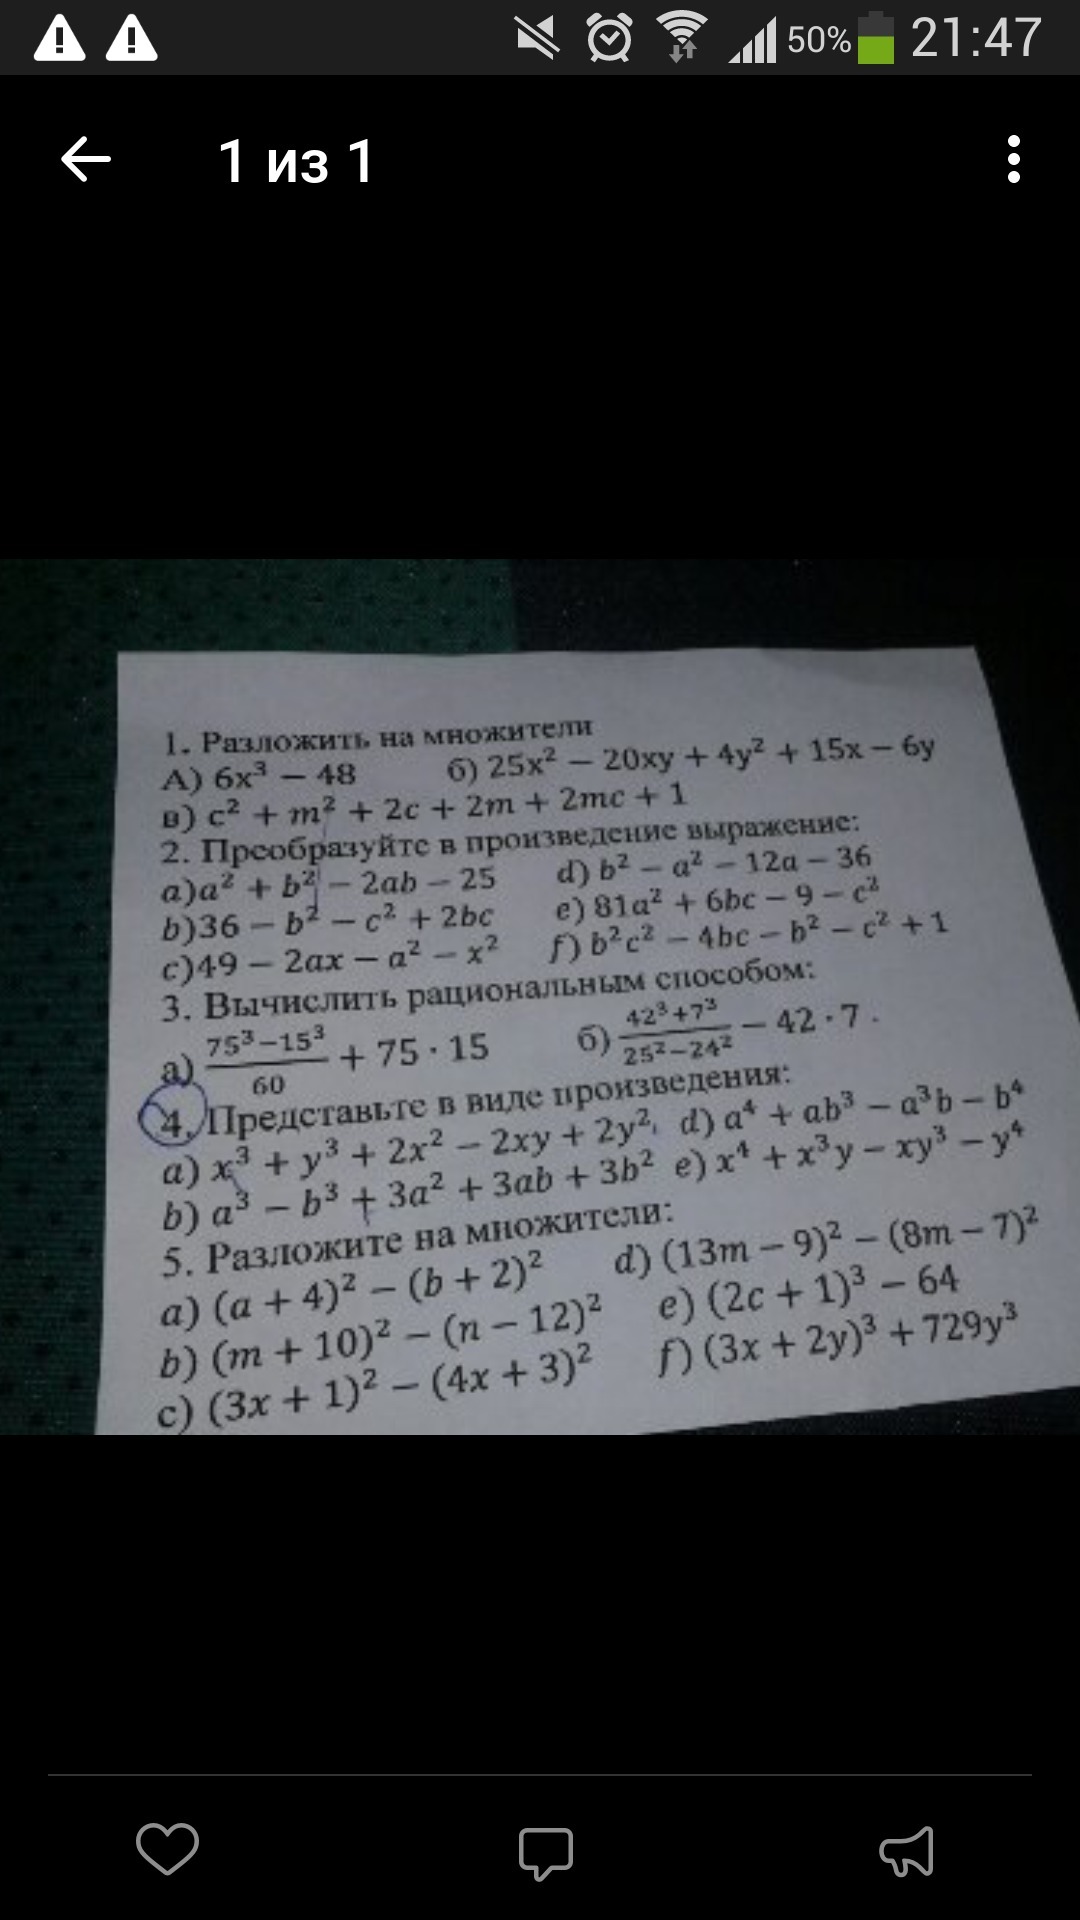 50% 21:47
1 из 1
1. Разложить на множители
А) 6x³ − 48 б) 25x² − 20xy + 4y² + 15x − 6y
в) c² + m² + 2c + 2m + 2mc + 1
2. Преобразуйте в произведение выражение:
a)a² + b² − 2ab − 25 d) b² − a² − 12a − 36
b)36 − b² − c² + 2bc e) 81a² + 6bc − 9 − c²
c)49 − 2ax − a² − x² f) b²c² − 4bc − b² − c² + 1
3. Вычислить рациональным способом:
а) (75³−15³)/60 + 75 · 15 б) (42³+7³)/(25²−24²) − 42 · 7 .
4. Представьте в виде произведения:
a) x³ + y³ + 2x² − 2xy + 2y² d) a⁴ + ab³ − a³b − b⁴
b) a³ − b³ + 3a² + 3ab + 3b² e) x⁴ + x³y − xy³ − y⁴
5. Разложите на множители:
a) (a + 4)² − (b + 2)² d) (13m − 9)² − (8m − 7)²
b) (m + 10)² − (n − 12)² e) (2c + 1)³ − 64
c) (3x + 1)² − (4x + 3)² f) (3x + 2y)³ + 729y³